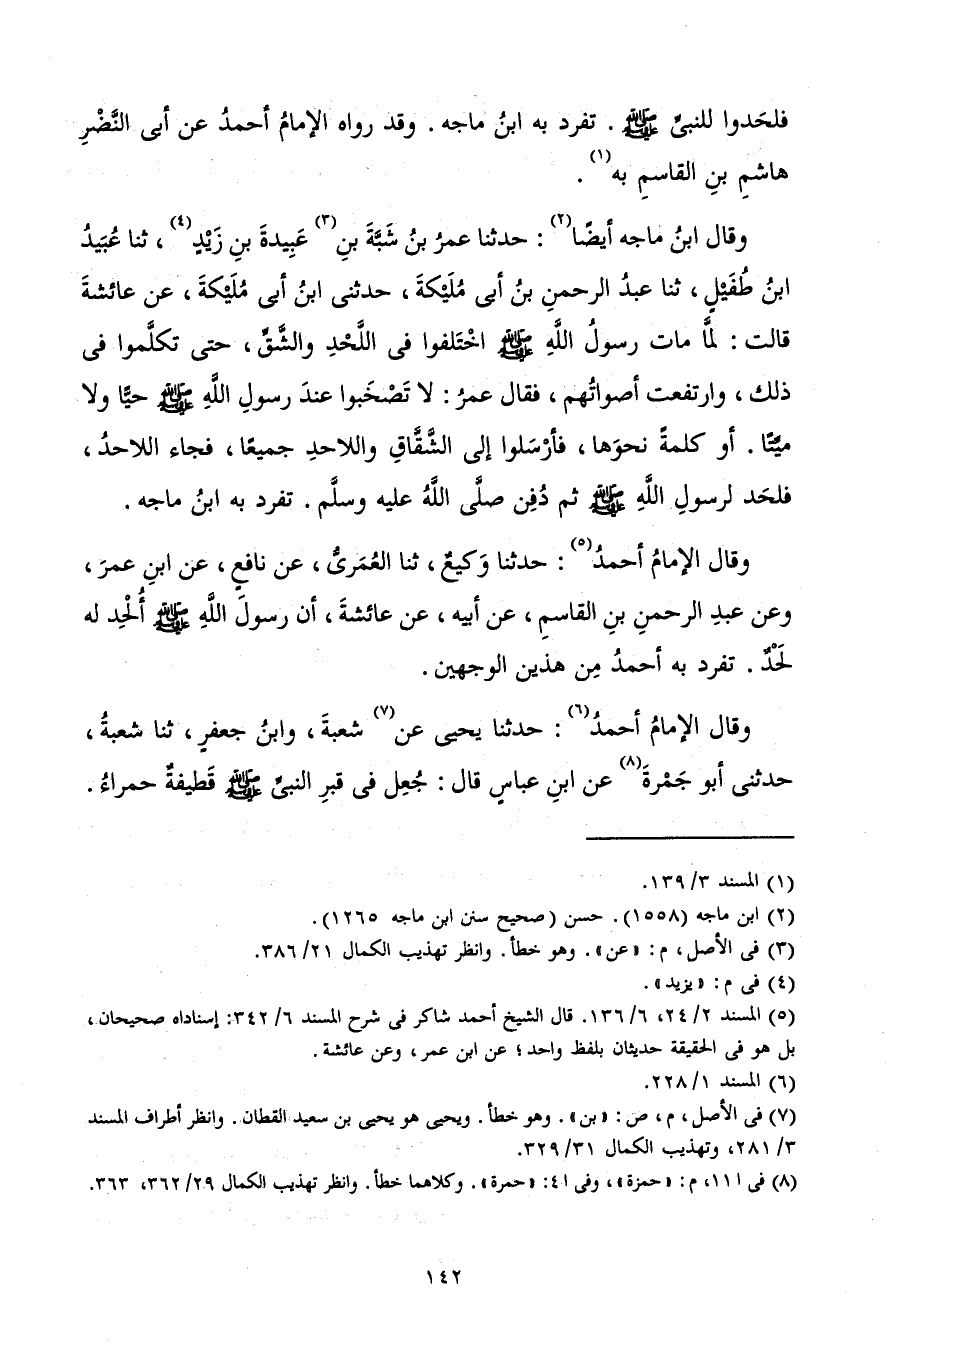 فلحَدوا للنبىِّ ﷺ . تفرد به ابنُ ماجه . وقد رواه الإمامُ أحمدُ عن أبى النَّضْرِ
هاشمِ بنِ القاسمِ به(١) .
وقال ابنُ ماجه أيضًا(٢) : حدثنا عمرُ بنُ شَبَّةَ بنِ(٣) عَبِيدةَ بنِ زَيْدٍ(٤) ، ثنا عُبَيدُ
ابنُ طُفَيْلٍ ، ثنا عبدُ الرحمنِ بنُ أبى مُلَيْكةَ ، حدثنى ابنُ أبى مُلَيْكةَ ، عن عائشةَ
قالت : لمَّا مات رسولُ اللَّهِ ﷺ اخْتَلفوا فى اللَّحْدِ والشَّقِّ ، حتى تكلَّموا فى
ذلك ، وارتفعت أصواتُهم ، فقال عمرُ : لا تَصْخَبوا عندَ رسولِ اللَّهِ ﷺ حيًّا ولا
ميِّتًا . أو كلمةً نحوَها ، فأرْسَلوا إلى الشَّقَّاقِ واللاحدِ جميعًا ، فجاء اللاحدُ ،
فلحَد لرسولِ اللَّهِ ﷺ ثم دُفِن صلَّى اللَّهُ عليه وسلَّم . تفرد به ابنُ ماجه .
وقال الإمامُ أحمدُ(٥) : حدثنا وَكيعٌ ، ثنا العُمَرىُّ ، عن نافعٍ ، عن ابنِ عمرَ ،
وعن عبدِ الرحمنِ بنِ القاسمِ ، عن أبيه ، عن عائشةَ ، أن رسولَ اللَّهِ ﷺ أُلْحِد له
لَحْدٌ . تفرد به أحمدُ مِن هذين الوجهين .
وقال الإمامُ أحمدُ(٦) : حدثنا يحيى عن(٧) شعبةَ ، وابنُ جعفرٍ ، ثنا شعبةُ ،
حدثنى أبو جَمْرةَ(٨) عن ابنِ عباسٍ قال : جُعِل فى قبرِ النبىِّ ﷺ قَطيفةٌ حمراءُ .
(١) المسند ٣/ ١٣٩.
(٢) ابن ماجه (١٥٥٨) . حسن (صحيح سنن ابن ماجه ١٢٦٥) .
(٣) فى الأصل ، م : «عن» . وهو خطأ . وانظر تهذيب الكمال ٢١/ ٣٨٦.
(٤) فى م : «يزيد» .
(٥) المسند ٢/ ٢٤، ٦/ ١٣٦. قال الشيخ أحمد شاكر فى شرح المسند ٦/ ٣٤٢: إسناداه صحيحان ،
بل هو فى الحقيقة حديثان بلفظ واحد ؛ عن ابن عمر ، وعن عائشة .
(٦) المسند ١/ ٢٢٨.
(٧) فى الأصل ، م ، ص : «بن» . وهو خطأ . ويحيى هو يحيى بن سعيد القطان . وانظر أطراف المسند
٣/ ٢٨١، وتهذيب الكمال ٣١/ ٣٢٩.
(٨) فى ا ١١، م : «حمزة» ، وفى ا ٤: «حمرة» . وكلاهما خطأ . وانظر تهذيب الكمال ٢٩/ ٣٦٢، ٣٦٣.
١٤٢